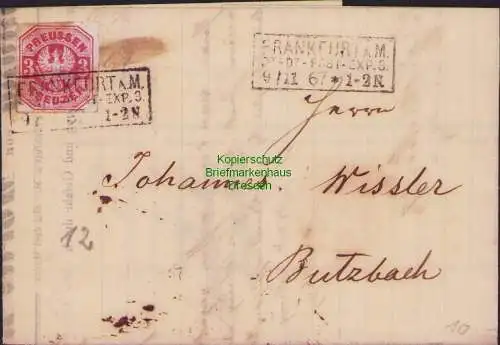 PREUSSEN
3
3
FRANKFURT A.M.
EXP. 3.
1-2N
FRANKFURT A.M.
ST-POST-EXP. 3.
9/11 67 * 1-2N
Kopierschutz
Briefmarkenhaus
Dresden
Herrn
Johannes Wissler
Butzbach
12
10